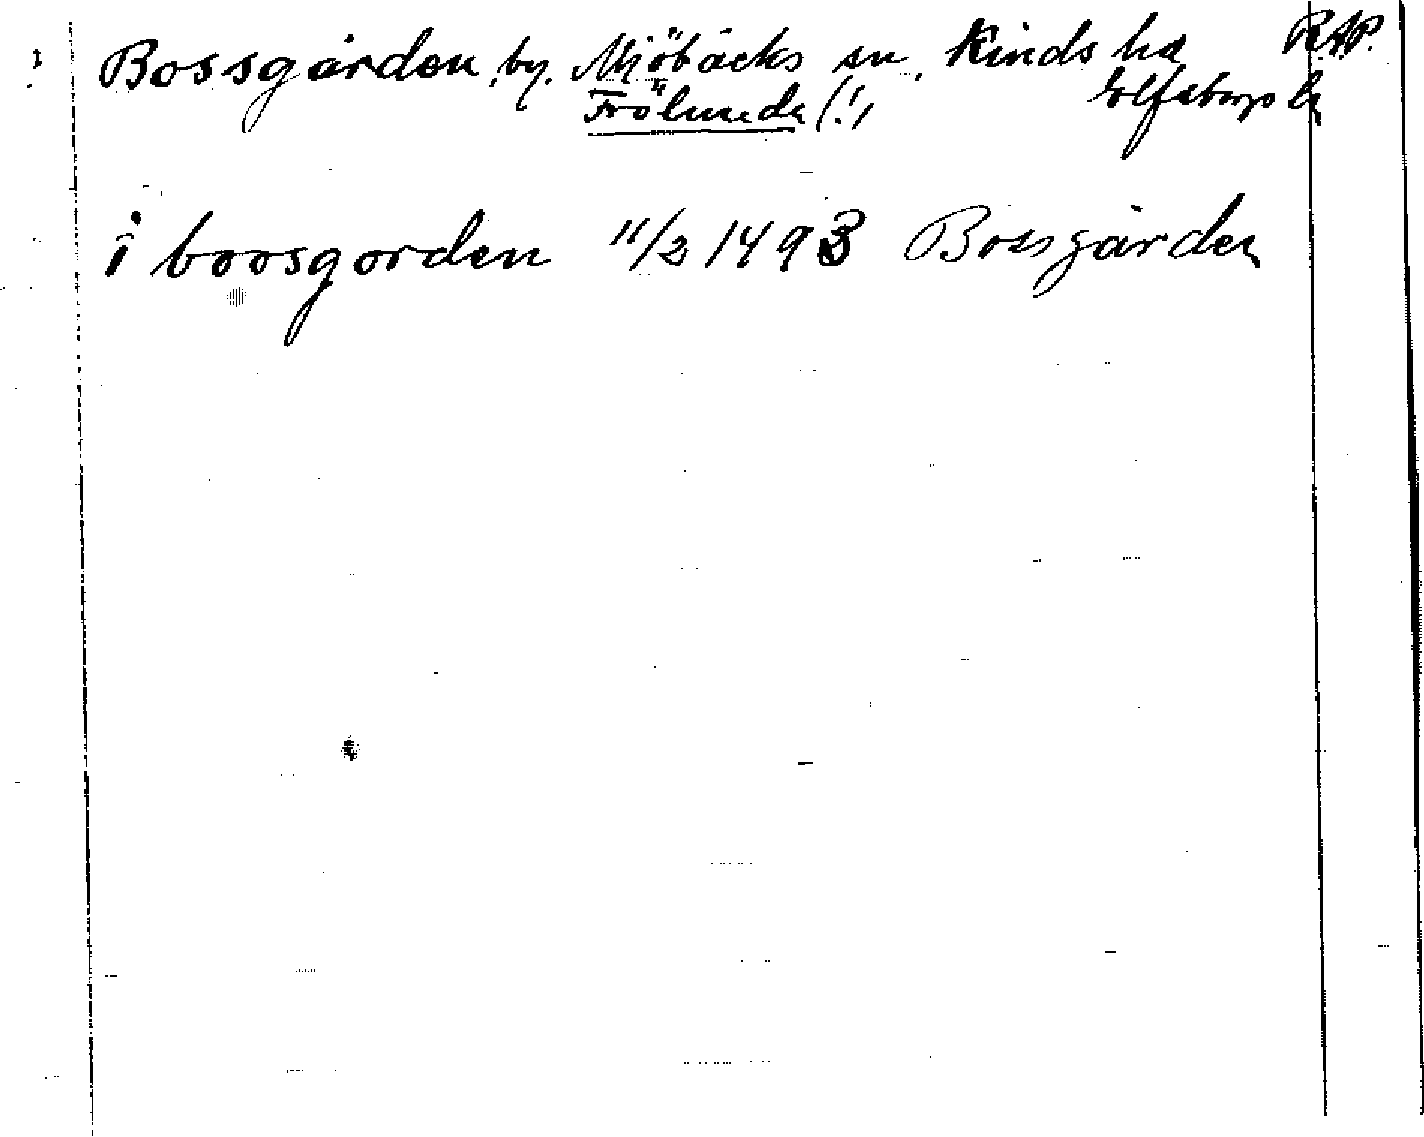 Bossgården, by, Mjöbäcks sn, Kinds hd RAP.
Frölunda (!) Elfsborgs län
i boosgorden 11/2 1493 Bossgården